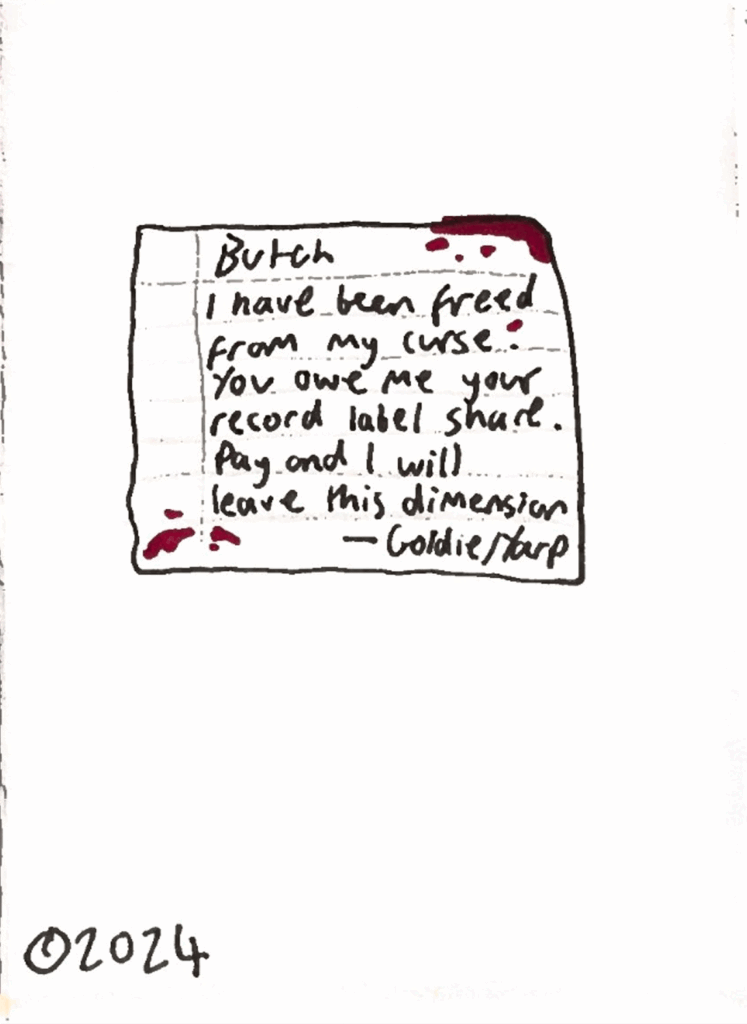 Butch
I have been freed
from my curse.
You owe me your
record label share.
Pay and I will
leave this dimension
— Goldie/Yarp
©2024